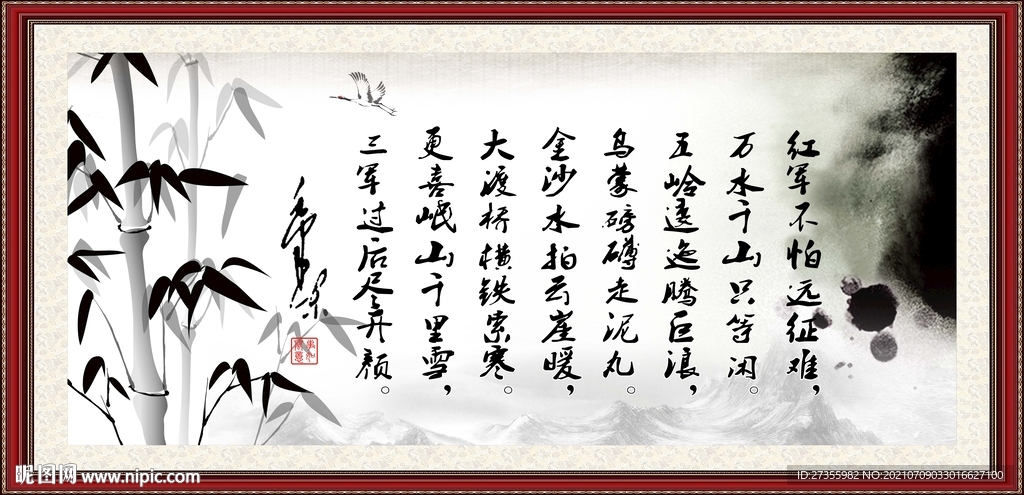 红军不怕远征难，
万水千山只等闲。
五岭逶迤腾巨浪，
乌蒙磅礴走泥丸。
金沙水拍云崖暖，
大渡桥横铁索寒。
更喜岷山千里雪，
三军过后尽开颜。
昵图网 www.nipic.com
ID:27355982 NO:20210709033016627100